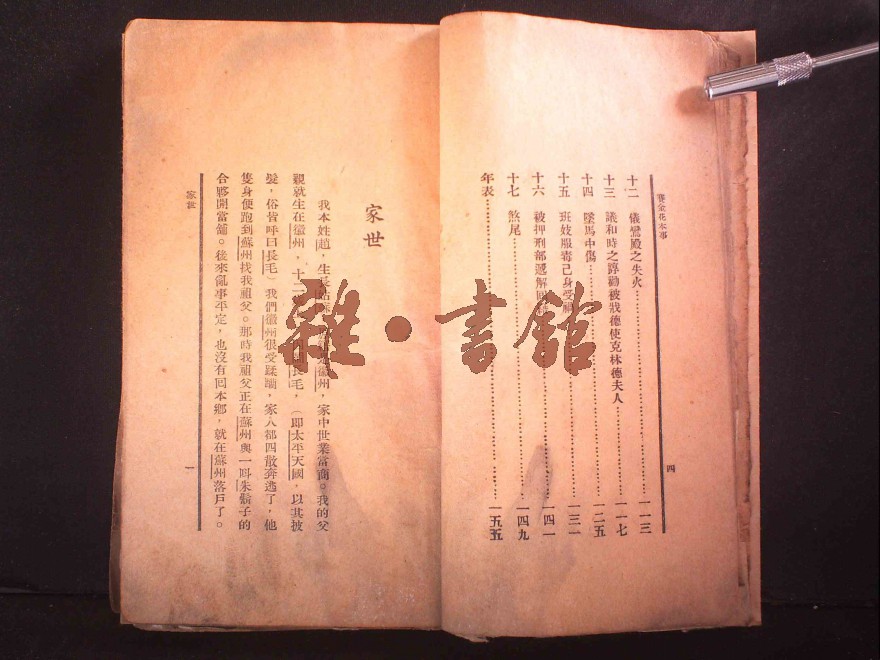 賽金花本事
十二 儀鸞殿之失火……一一三
十三 議和時之躊勸被戕德使克林德夫人……一一七
十四 墜馬中傷……一二五
十五 班妓服毒己身受……一三一
十六 被押刑部遞解回……一四一
十七 煞尾……一四九
年表……一五五
四
家世
我本姓趙，生長姑，徽州，家中世業當商。我的父
親就生在徽州，十二長毛，（即太平天國，以其披
髮，俗皆呼曰長毛）我們徽州很受蹂躪，家人都四散奔逃了，他
隻身便跑到蘇州找我祖父。那時我祖父正在蘇州與一朱鬍子的
合夥開當舖。後來亂事平定，也沒有回本鄉，就在蘇州落戶了。
家世
一
雜·書館